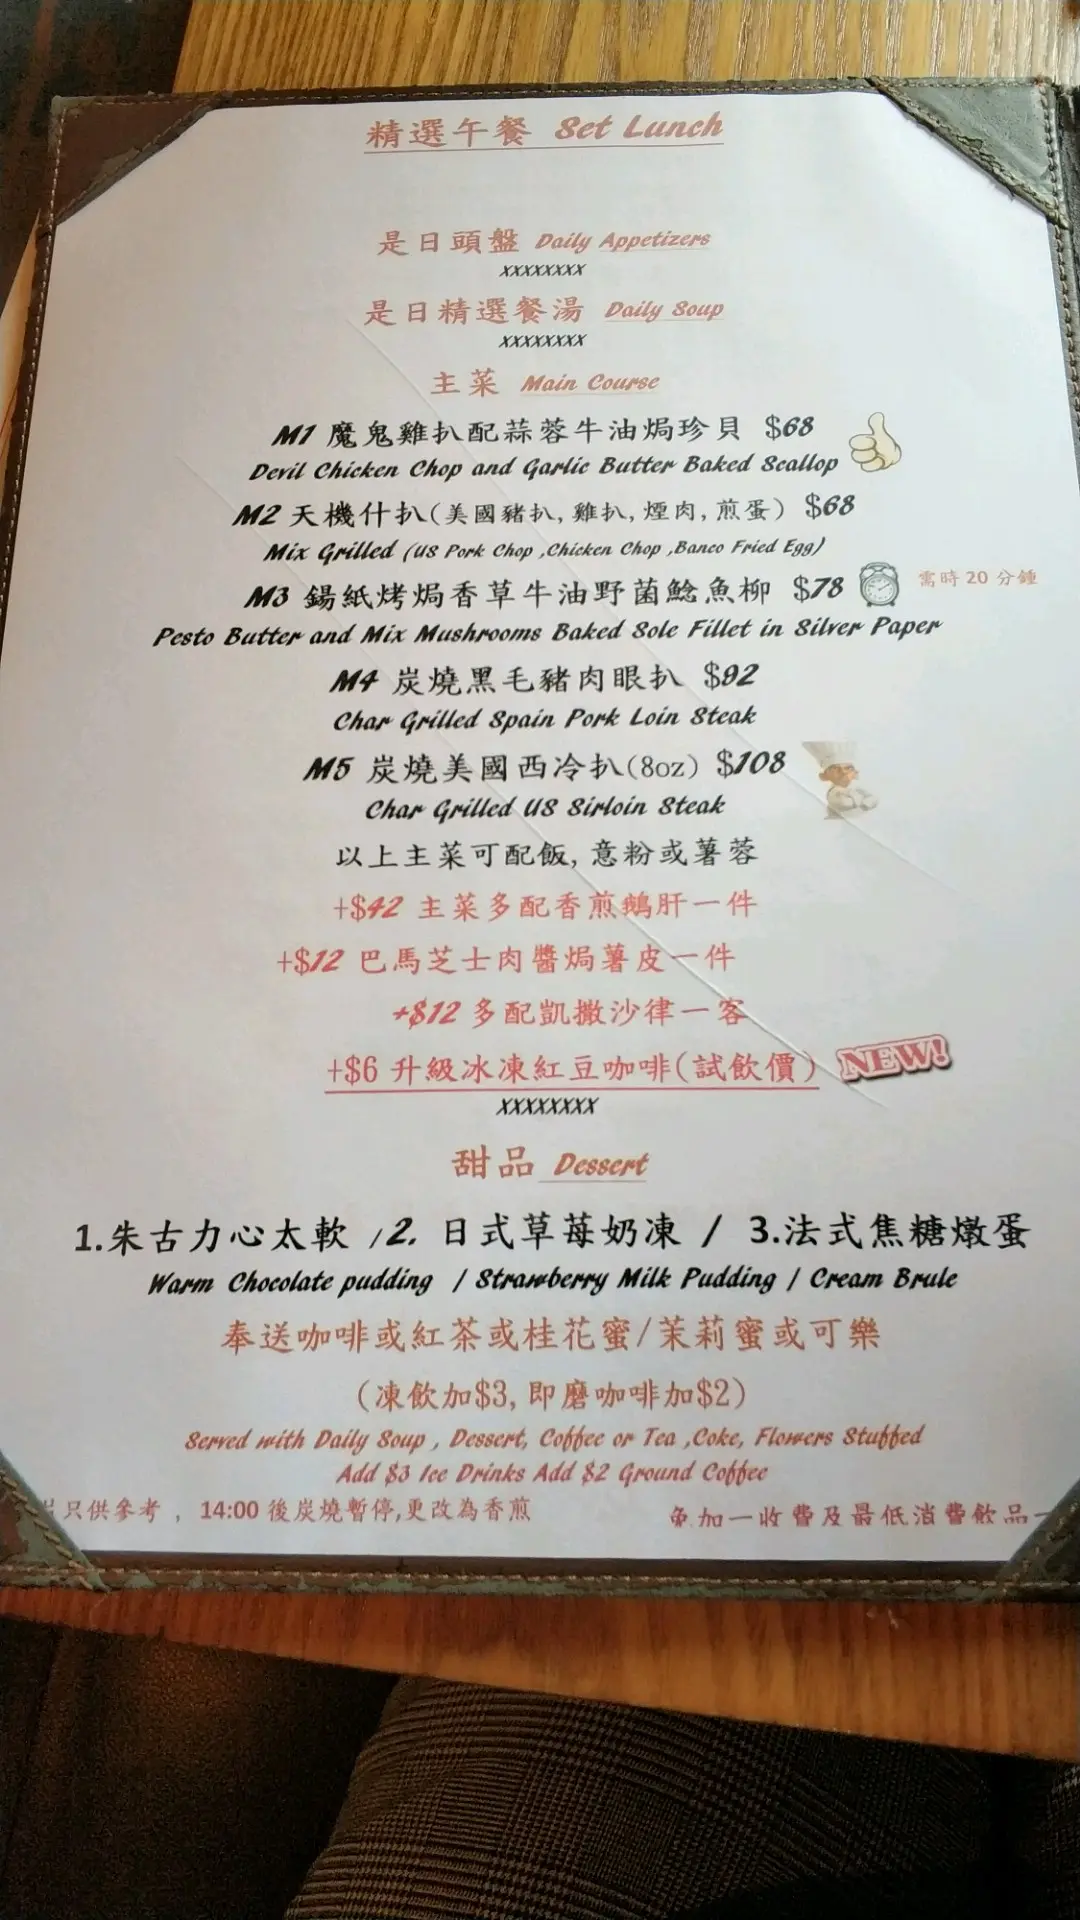 精選午餐 Set Lunch
是日頭盤 Daily Appetizers
xxxxxxxx
是日精選餐湯 Daily Soup
xxxxxxxx
主菜 Main Course
M1 魔鬼雞扒配蒜蓉牛油焗珍貝 $68
Devil Chicken Chop and Garlic Butter Baked Scallop
M2 天機什扒(美國豬扒, 雞扒, 煙肉, 煎蛋) $68
Mix Grilled (US Pork Chop ,Chicken Chop ,Banco Fried Egg)
M3 錫紙烤焗香草牛油野菌鯰魚柳 $78 需時 20 分鍾
Pesto Butter and Mix Mushrooms Baked Sole Fillet in Silver Paper
M4 炭燒黑毛豬肉眼扒 $92
Char Grilled Spain Pork Loin Steak
M5 炭燒美國西冷扒(8oz) $108
Char Grilled US Sirloin Steak
以上主菜可配飯, 意粉或薯蓉
+$42 主菜多配香煎鵝肝一件
+$12 巴馬芝士肉醬焗薯皮一件
+$12 多配凱撒沙律一客
+$6 升級冰凍紅豆咖啡(試飲價) NEW!
xxxxxxxx
甜品 Dessert
1.朱古力心太軟 /2. 日式草莓奶凍 / 3.法式焦糖燉蛋
Warm Chocolate pudding / Strawberry Milk Pudding / Cream Brule
奉送咖啡或紅茶或桂花蜜/茉莉蜜或可樂
(凍飲加$3, 即磨咖啡加$2)
Served with Daily Soup , Dessert, Coffee or Tea ,Coke, Flowers Stuffed
Add $3 Ice Drinks Add $2 Ground Coffee
只供參考 , 14:00 後炭燒暫停,更改為香煎 免加一收費及最低消費飲品一